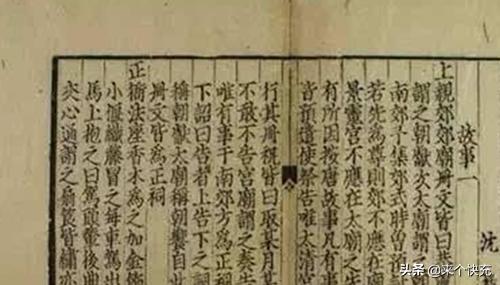 沈
故事一
上親郊郊廟冊文皆曰
謂之朝獻次太廟謂
南郊予集郊式時曾
若先為尊則郊不應在
景靈宮不應在太廟之先
有所因按唐故事凡有
皆預遣使祭告唯太清宮
行其冊祝皆曰取某月某
不敢不告宮廟謂之奏告
唯有事于南郊方為正祠
下詔曰告者上告下之詞
稱朝獻太廟稱朝饗自此
冊文皆為正祠
正衙法座香木為之加金飾
小偃織藤冒之每車駕出
馬上抱之曰駕頭輦後曲
夾心通謂之扇筤皆繡亦
头条 @来个快充